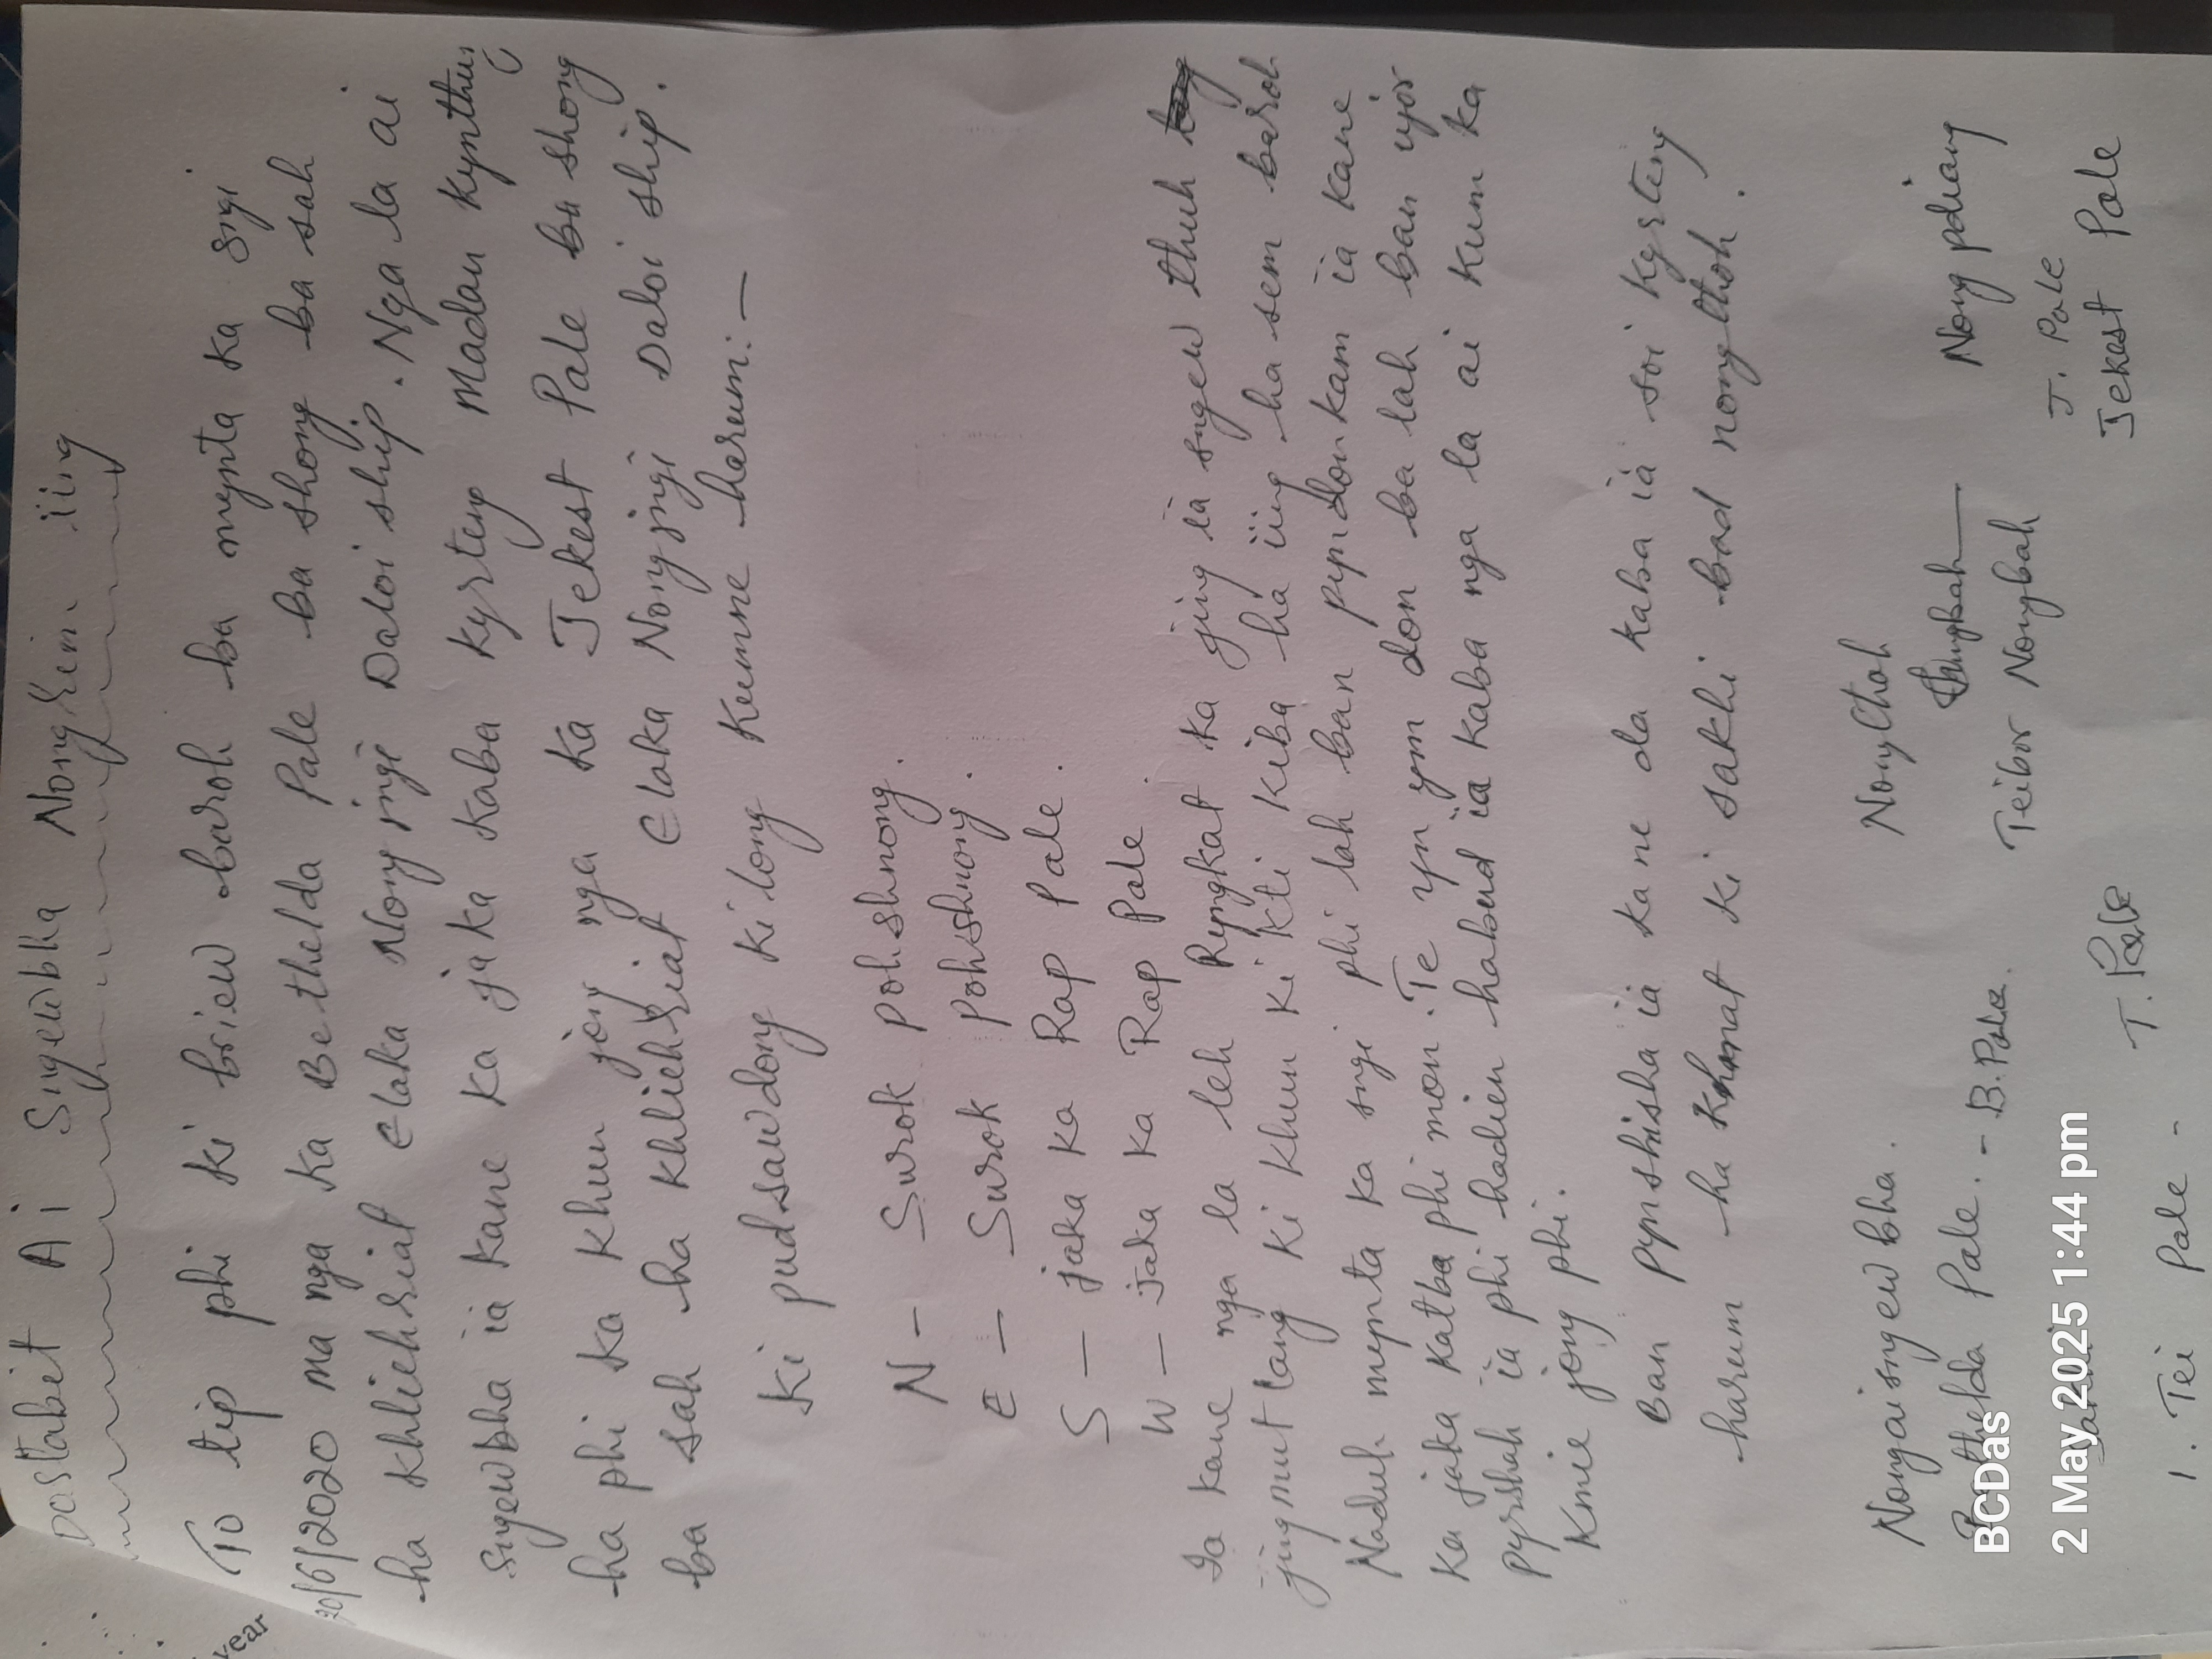 Dastabit Ai Sngewbha Nongkein iing
To tip phi ki briew baroh ba mynta ka sngi
20/6/2020 ma nga ka Bethelda Pale ba shong ba sah
ha Khliehriat Elaka Nongjngi Daloi ship. Nga la ai
Sngewbha ia kane ka jaka kaba kyrteng Madan kynthung
ha phi ka khun jong nga ka Jekest Pale ba shong
ba sah ha Khliehriat Elaka Nongjngi Daloi ship.
Ki pud sawdong ki long kumne harum:-
N - Surok pohshnong.
E - Surok pohshnong.
S - jaka ka Rap Pale.
W - jaka ka Rap Pale.
Ia kane nga la leh Ryngkat ka jing ia sngew thuh
jingmut lang ki khun ki kti kiba ha iing ha sem baroh
Naduh mynta ka sngi phi lah ban pyndonkam ia kane
ka jaka katba phi mon. Te yn ym don ba lah ban ujor
pyrshah ia phi hadien habud ia kaba nga la ai kum ka
Kmie jong phi.
Ban pynshisha ia kane da kaba ia soi kyrteng
harum ha khmat ki sakhi bad nongthoh.
Nongaisngewbha.
Bethelda Pale. - B.Pale.
Nongthoh
Teibor Nongbah
Nongpdiang
J. Pale
Jekest Pale
1. Tei Pale - T. Pale
BCDas
2 May 2025 1:44 pm
year